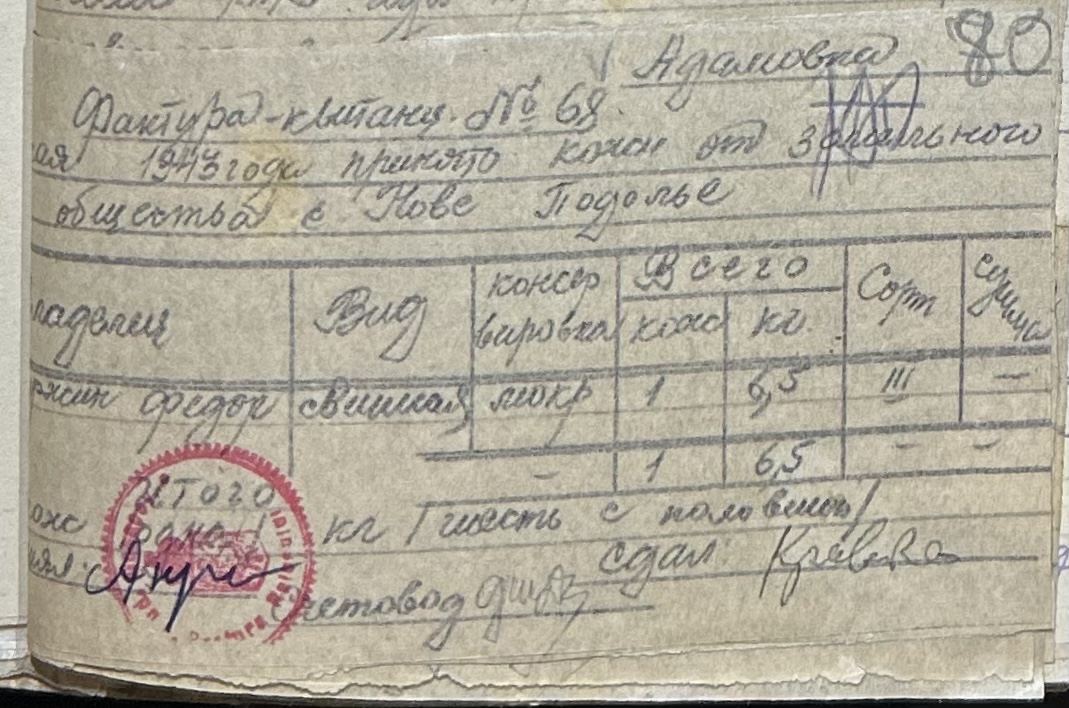 Адамовка 80
Фактура-квитанц. № 68
ая 1943 года принято кожи от земельного
общества с Нове Подолье
ладелец Вид консер вировка Всего кож кг. Сорт сумма
жин федор свинная мокр 1 6,5 III —
— 1 6,5 – –
Итого
кож одна / кг / шесть с половиной /
нял: сдал
Счетовод